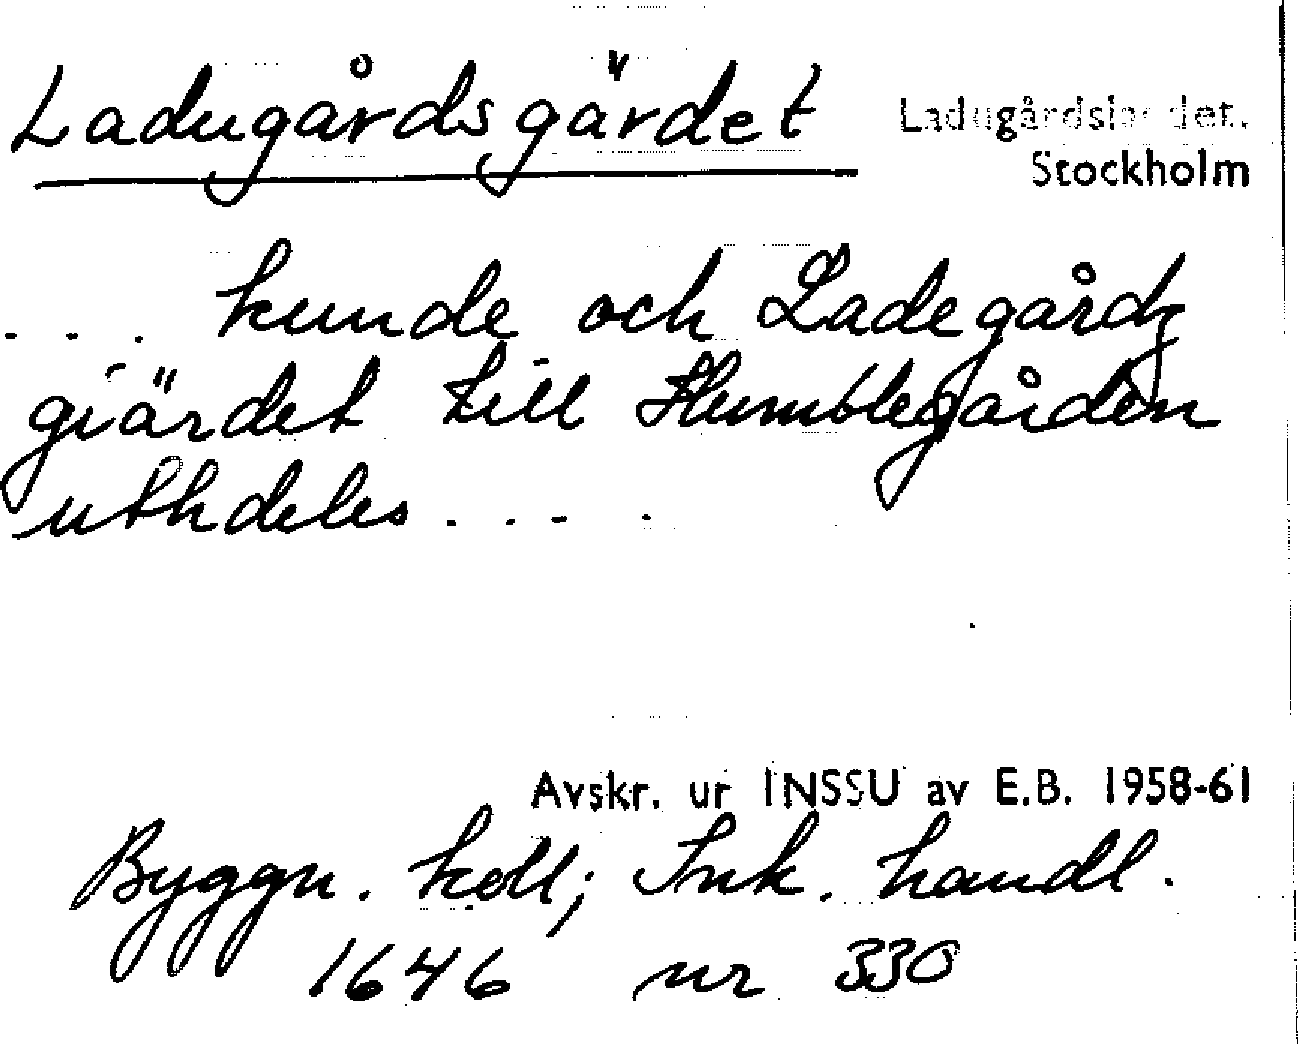 Ladugårdsgärdet
Ladugårdslandet.
Stockholm
. . . kunde och Ladegårdz
giärdet till Humblegården
uthdeles . . . .
Avskr. ur INSSU av E.B. 1958-61
Byggn. koll; Ink. handl.
1646 nr 330